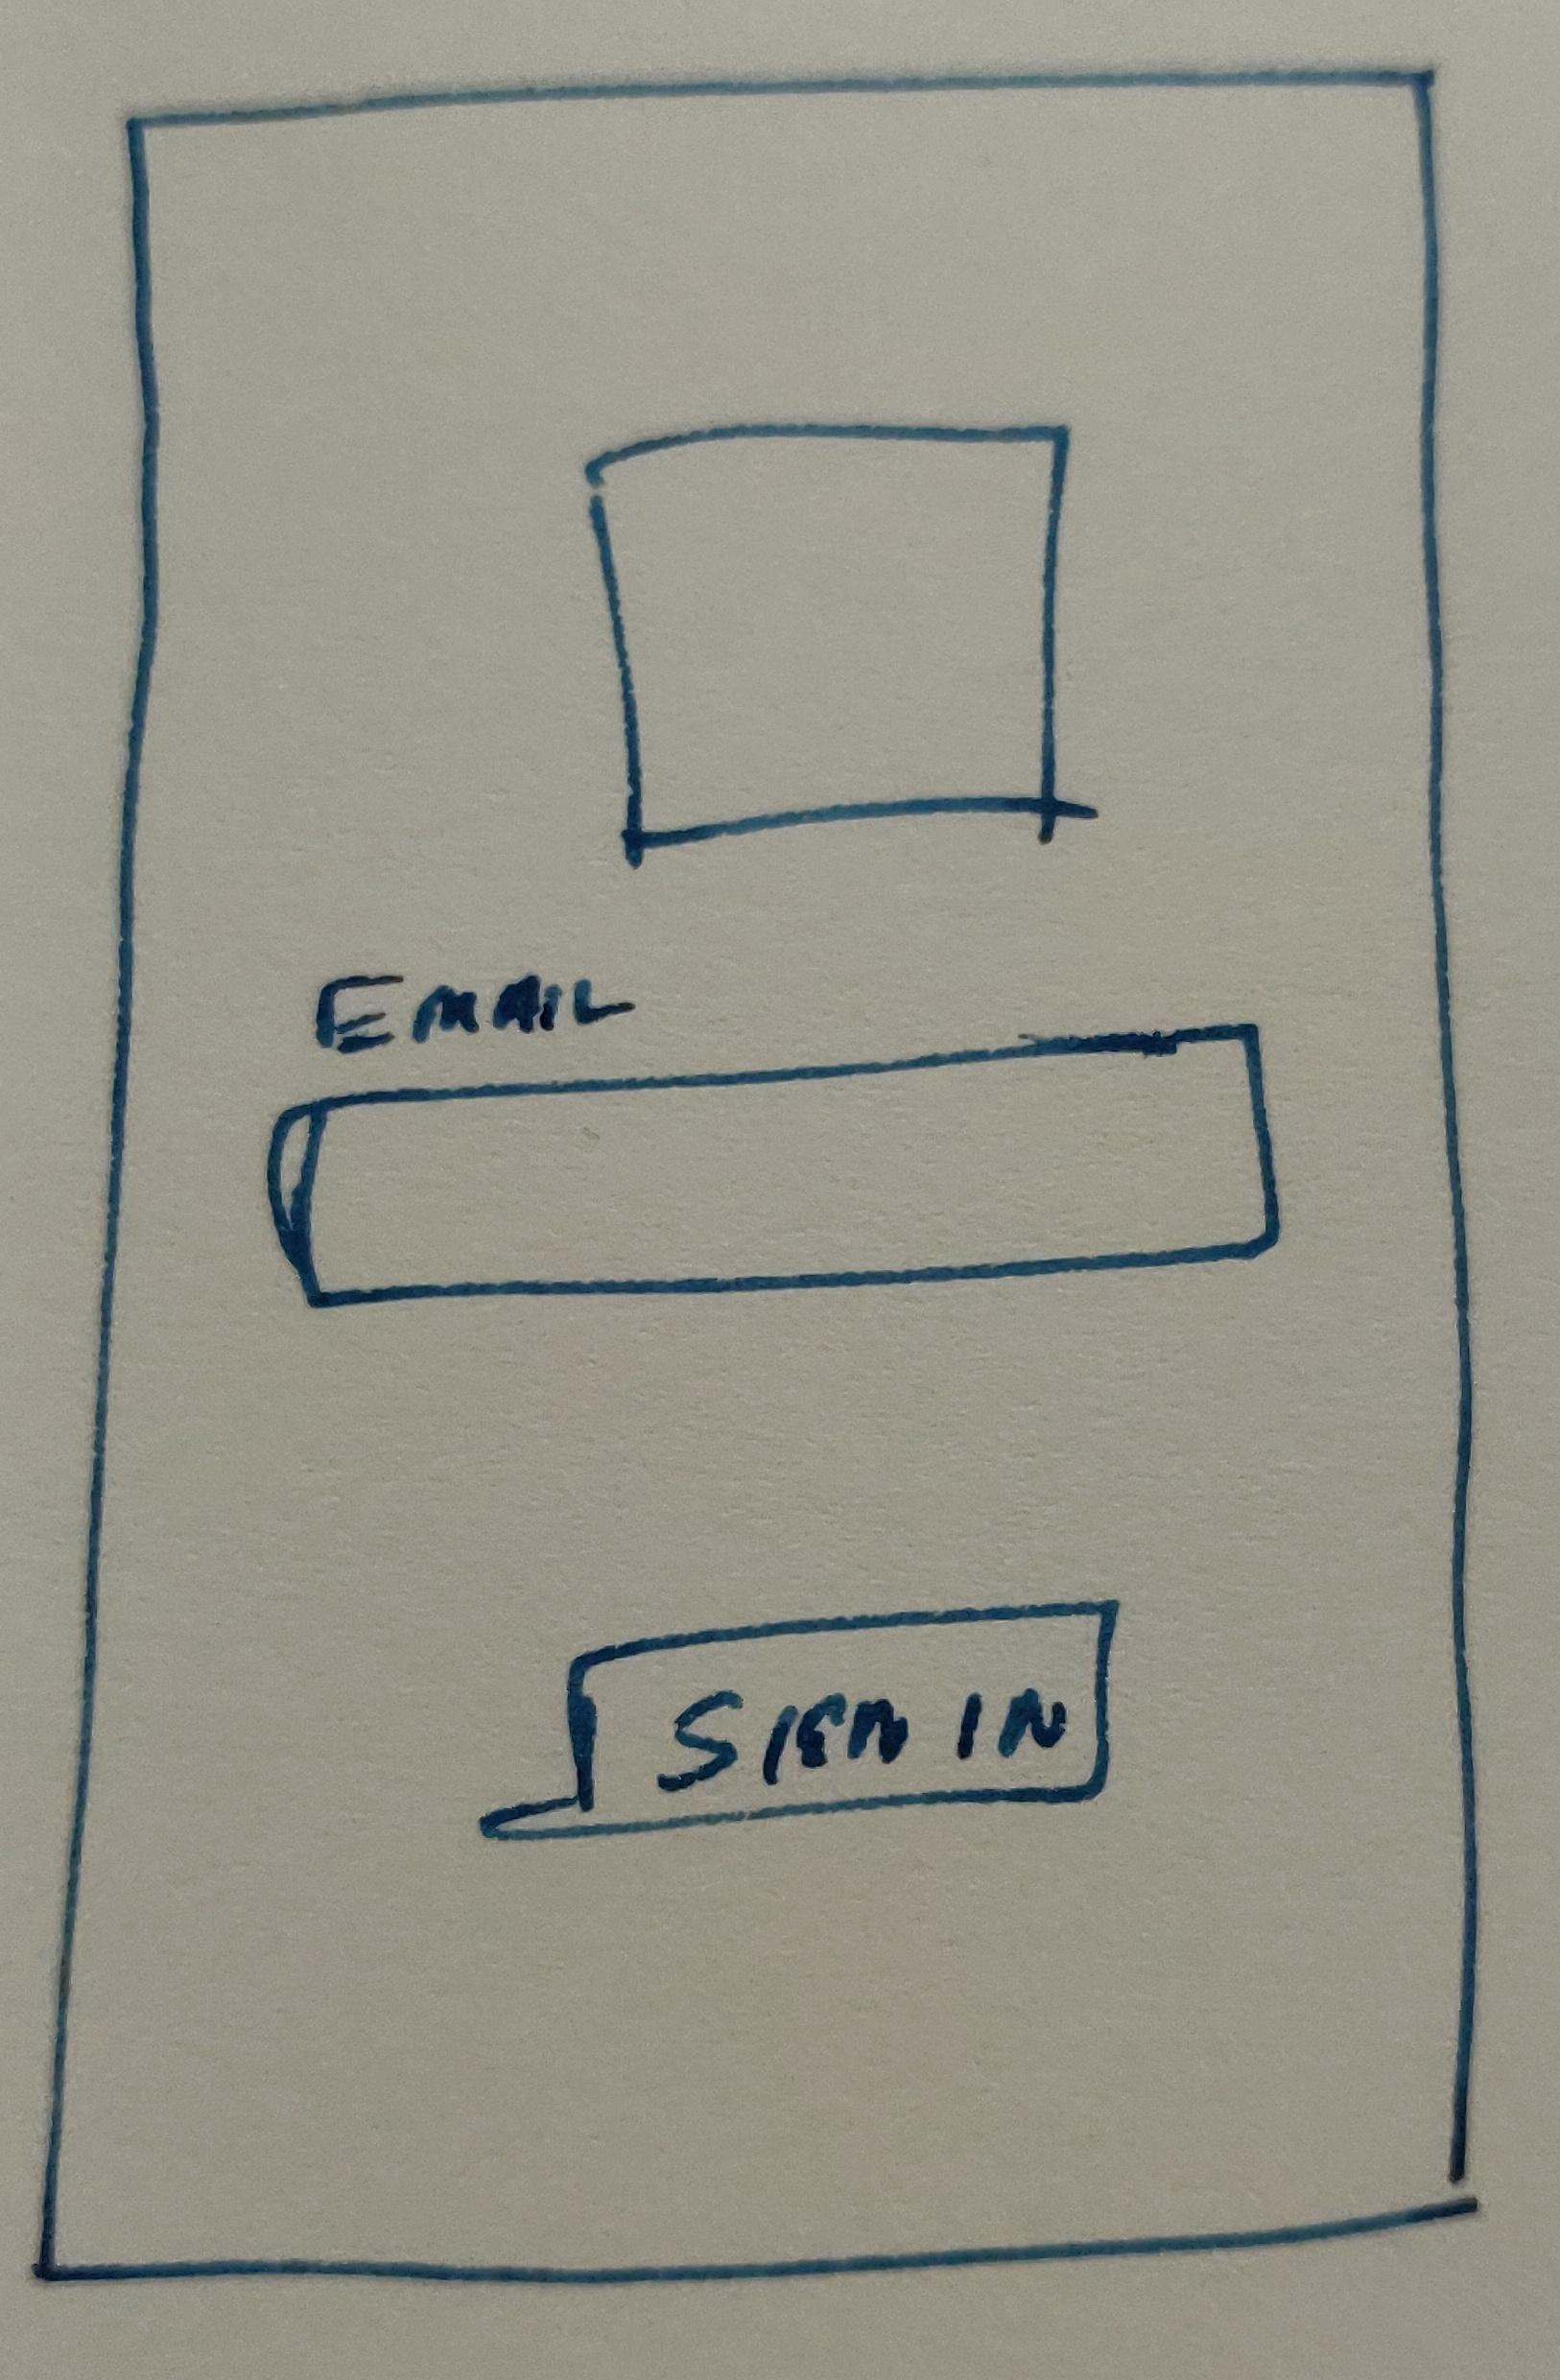 EMAIL
SIGN IN